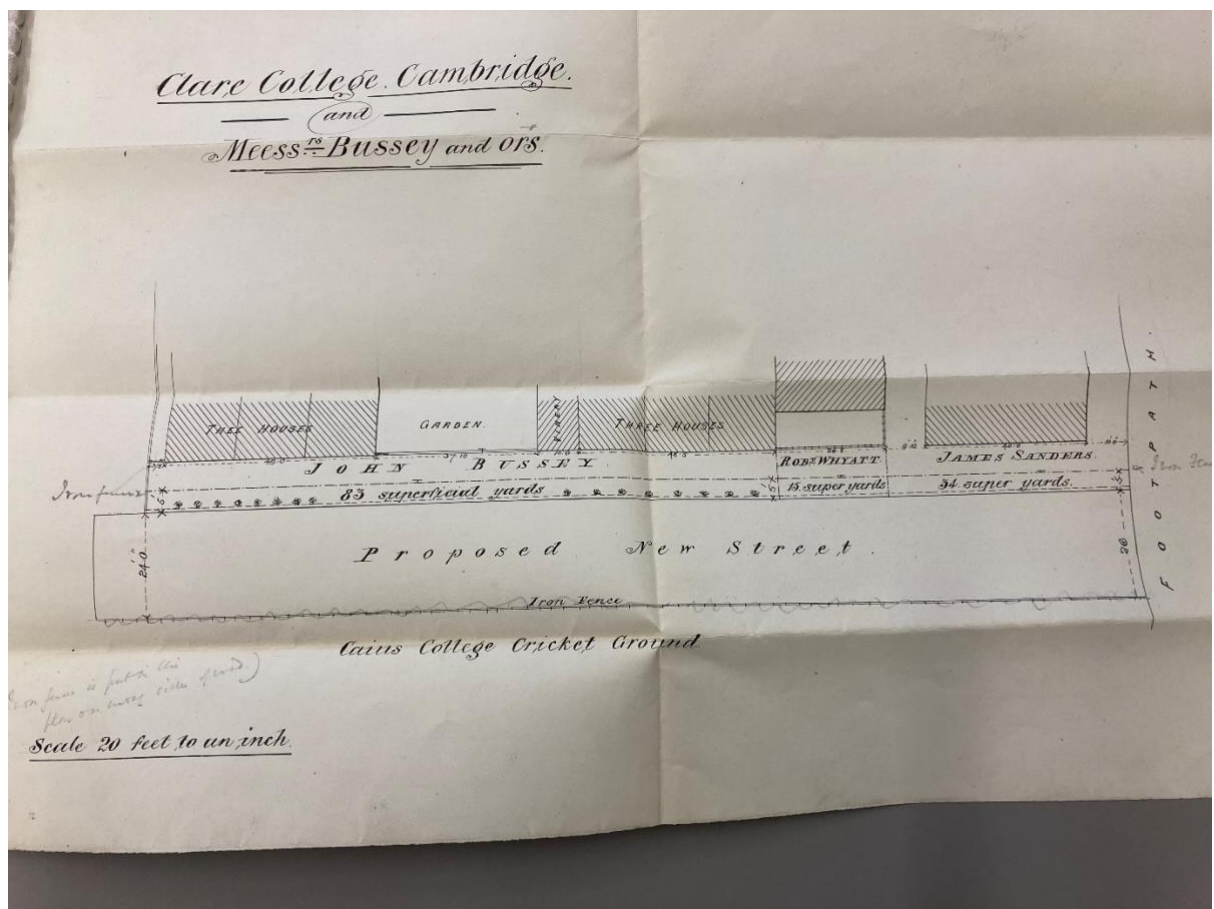 Clare College. Cambridge.
and
Meessrs Bussey and ors.
THREE HOUSES
GARDEN
THREE HOUSES
JOHN BUSSEY
ROBT WHYATT
JAMES SANDERS
83 superficial yards
15 super yards
34 super yards.
Iron fence
FOOTPATH.
24'0"
Proposed New Street.
Iron Fence
Caius College Cricket Ground
Iron fence is put in this
plan on wrong side of road.)
Scale 20 feet to an inch.